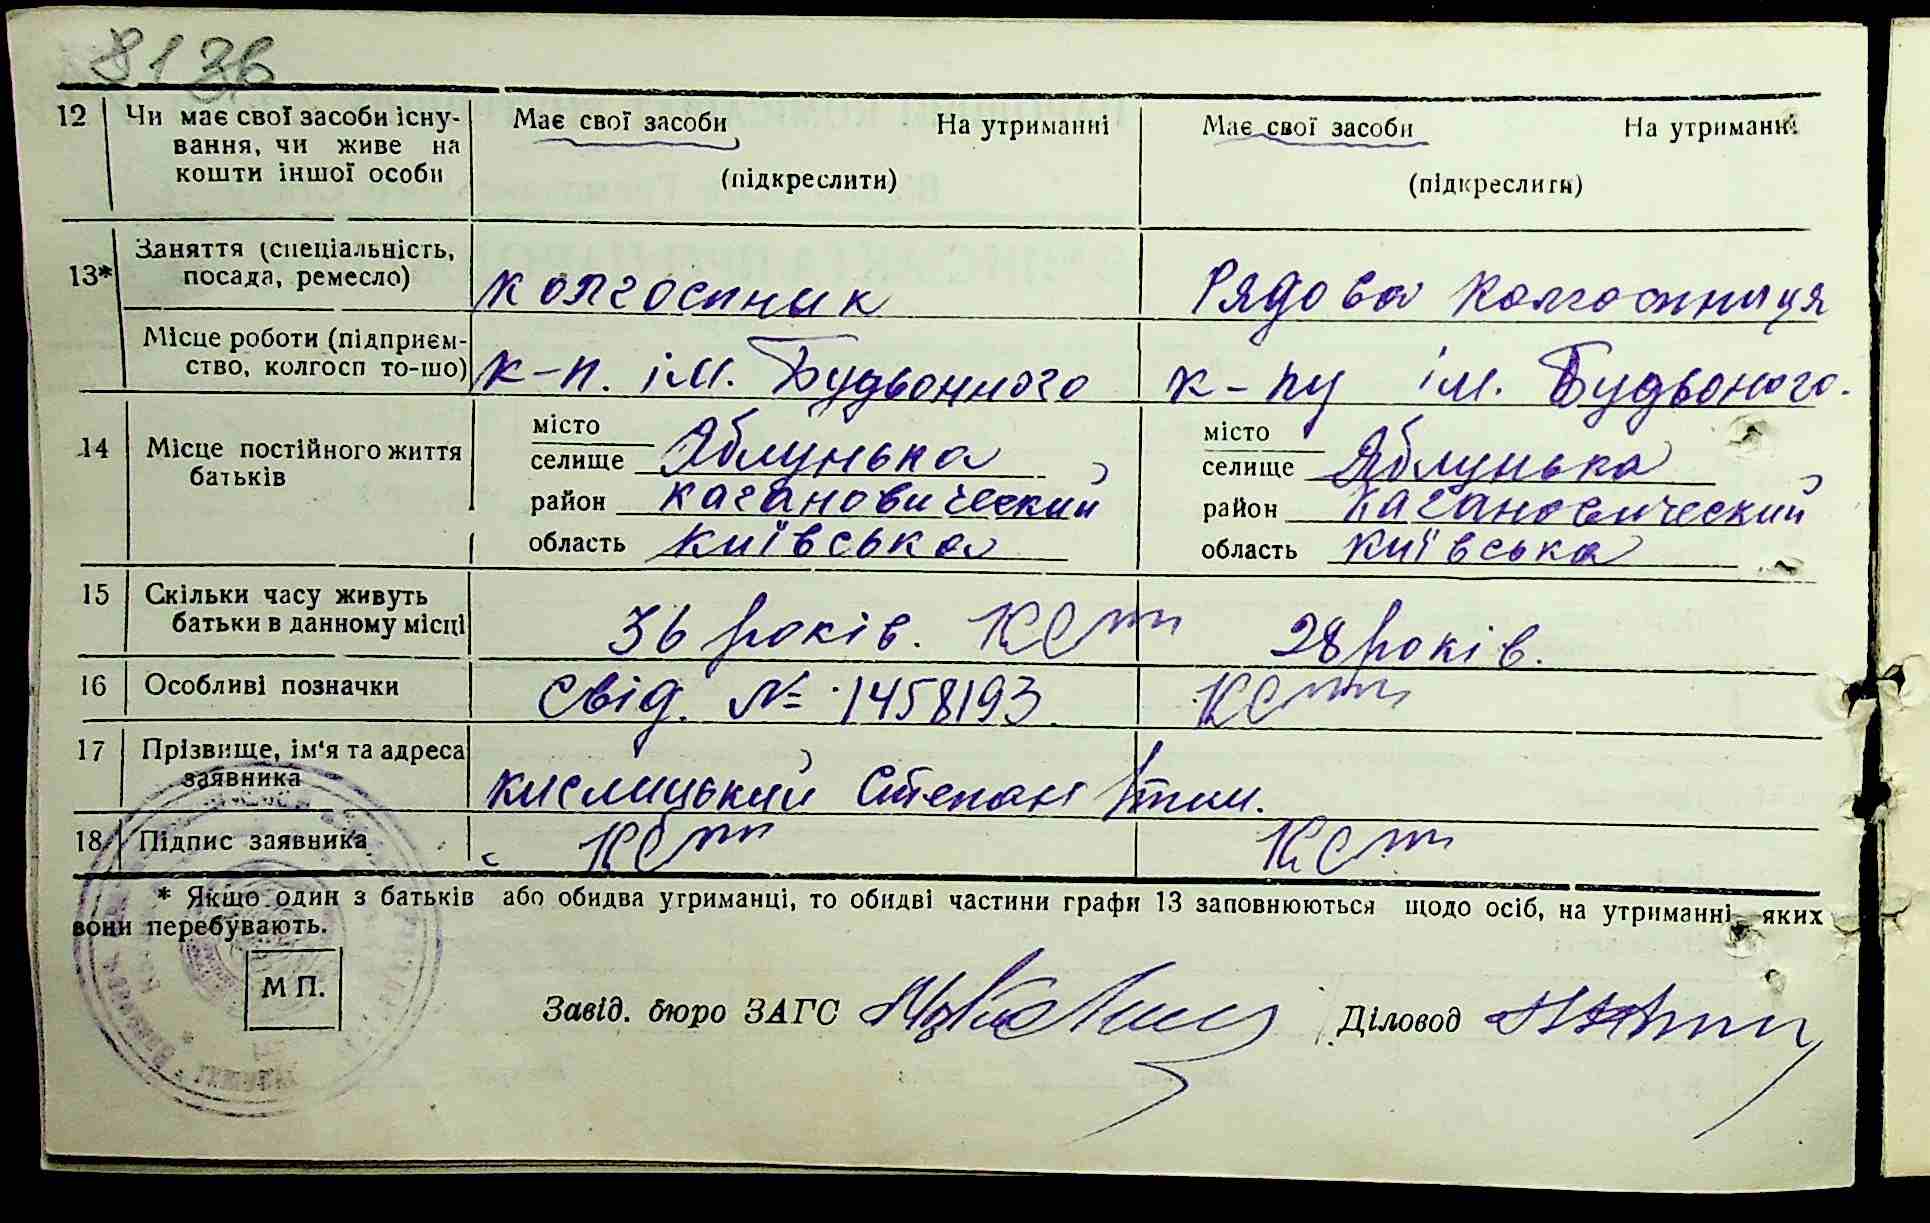 8136
12 Чи має свої засоби існу- Має свої засоби На утриманні Має свої засоби На утриманні
вання, чи живе на
кошти іншої особи (підкреслити) (підкреслити)
13* Заняття (спеціальність,
посада, ремесло) колгоспник Рядова колгоспниця
Місце роботи (підприєм-
ство, колгосп то-що) к-п. ім. Будьонного к-пу ім. Будьоного.
14 Місце постійного життя
батьків
місто місто
селище Яблунька селище Яблунька
район кагановический район кагановический
область київська область київська
15 Скільки часу живуть
батьки в данному місці 36 років. 28 років.
16 Особливі позначки Свід. № 1458193
17 Прізвище, ім'я та адреса
заявника кислицький Степан
18 Підпис заявника
* Якщо один з батьків або обидва утриманці, то обидві частини графи 13 заповнюються щодо осіб, на утриманні яких
вони перебувають.
М П.
Завід. бюро ЗАГС Діловод